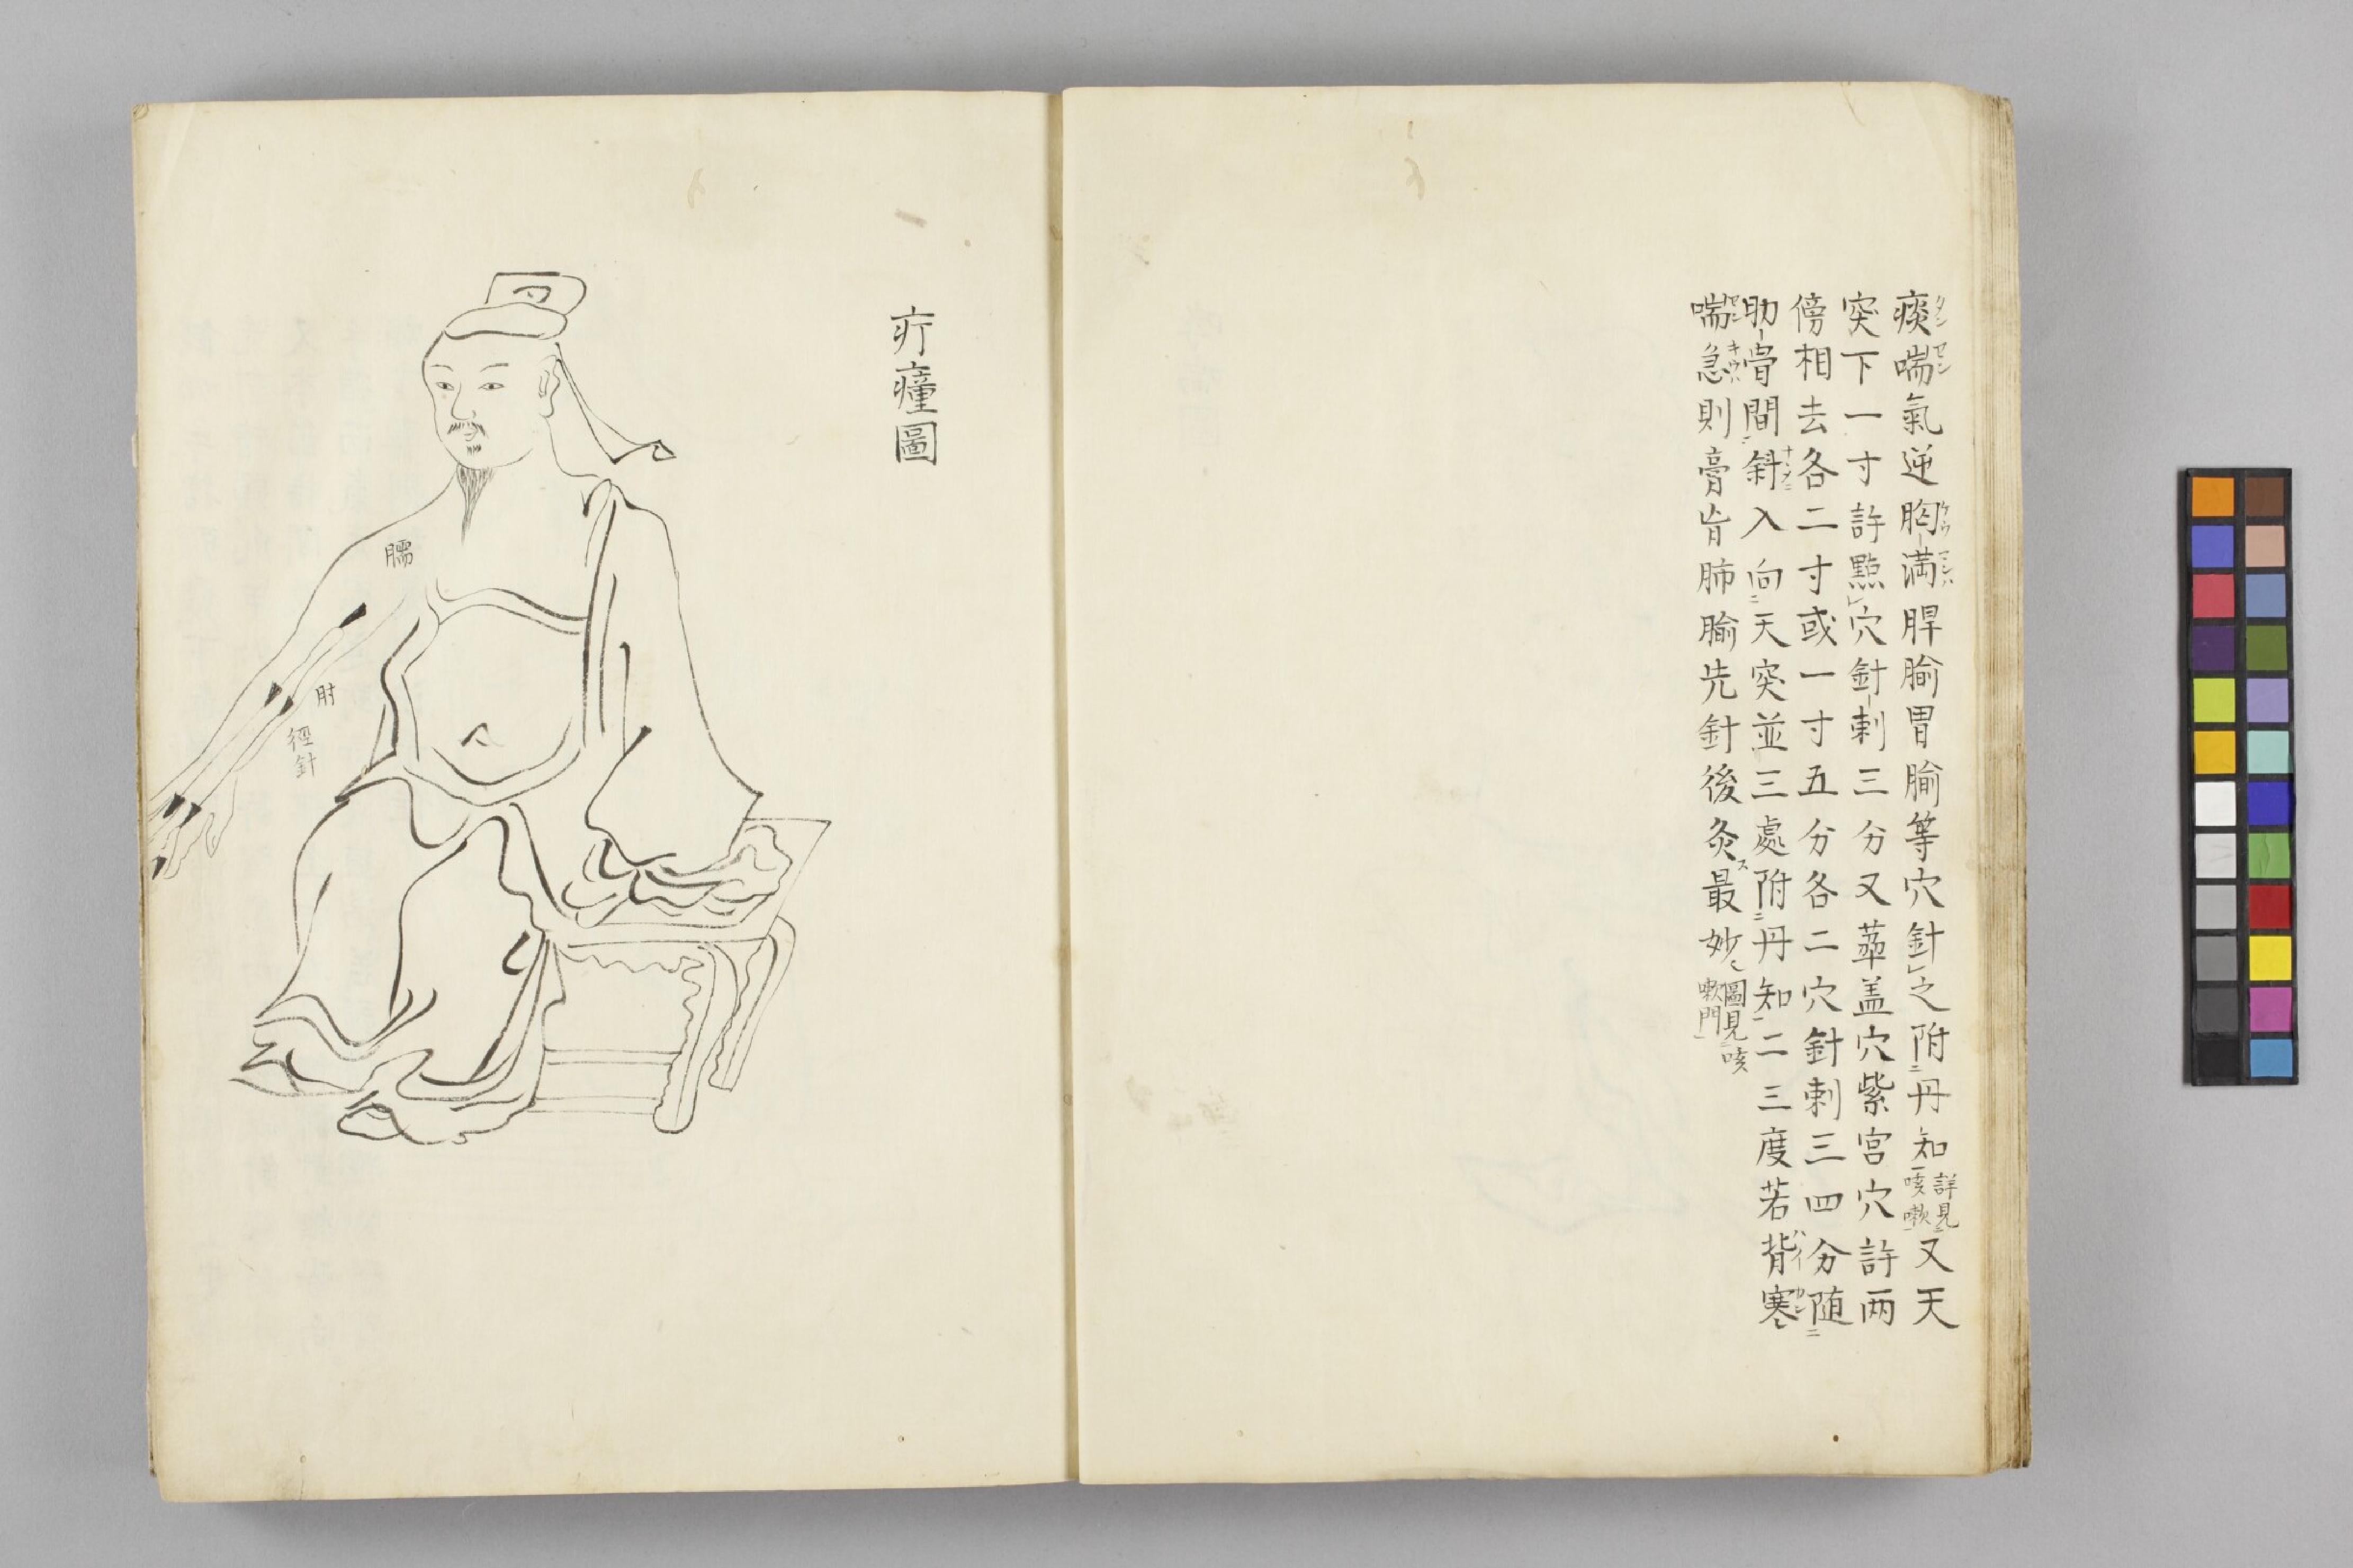 痰喘氣逆胸満脾腧胃腧等穴針之附丹知詳見咳嗽又天
突下一寸許點穴針刺三分又華盖穴紫宮穴許两
傍相去各二寸或一寸五分各二穴針刺三四分随
肋骨間斜入向天突並三處附丹知二三度若背寒
喘急則膏肓肺腧先針後灸最妙圖見咳嗽門
疔瘇圖
臑
肘
徑針